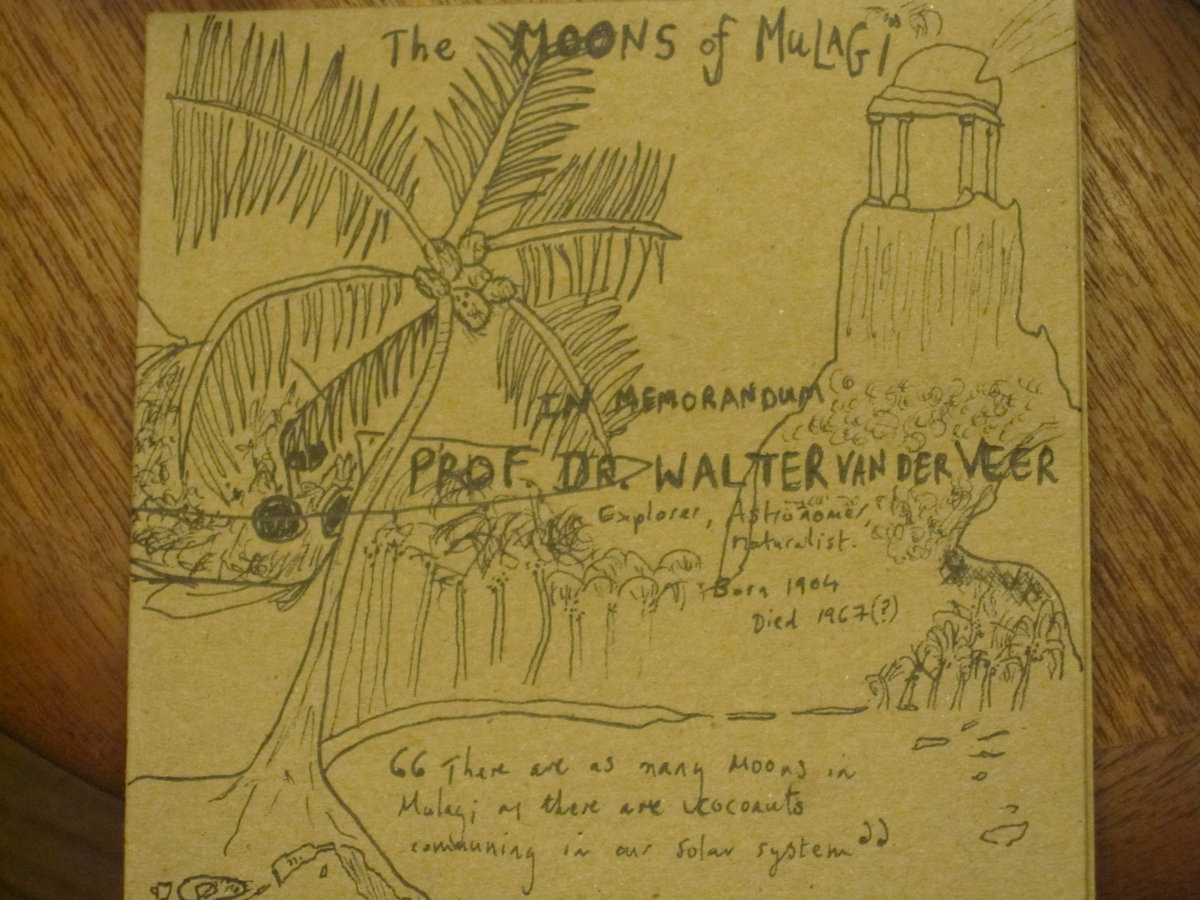 The MOONS of MULAGI
IN MEMORANDUM
PROF. DR. WALTER VAN DER VEER
Explorer, Astronomer,
naturalist.
Born 1904
Died 1967(?)
“There are as many Moons in
Mulagi as there are cocoauts
communing in our Solar system”